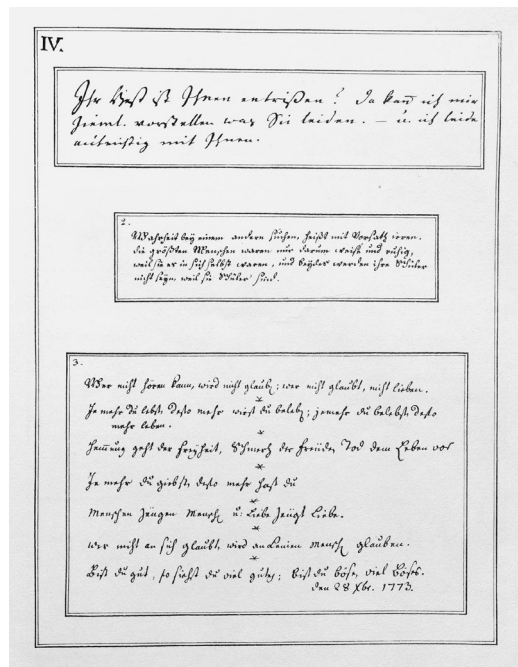 IV.
Ihr Gest ist Ihnen entrißen? Da kan̄ ich mir
Zieml. vorstellen was Sie leiden. — u. ich leide
aufrichtig mit Ihnen.
2.
Wahrheit bey einem andern suchen, heißt mit Vorsatz irren.
die größten Menschen waren nur darum weise und ruhig,
weil sie es in sich selbst waren, und beydes werden ihre Schüler
nicht seyn, weil sie Schüler sind.
3.
Wer nicht hören kann, wird nicht glaubē; wer nicht glaubt, nicht lieben.
*
Je mehr du lebst, desto mehr wirst du belebē; jemehr du belebst, desto
mehr leben.
*
Hem̄ung geht der Freyheit, Schmerz der Freude, Tod dem Leben vor
*
Je mehr du giebst, desto mehr hast du
*
Menschen zeugen Menschē u: Liebe zeugt Liebe.
*
Wer nicht an sich glaubt, wird an keinen Menschē glauben.
*
Bist du gut, so siehst du viel gutes; bist du böse, viel Böses.
den 28 Xbr. 1773.